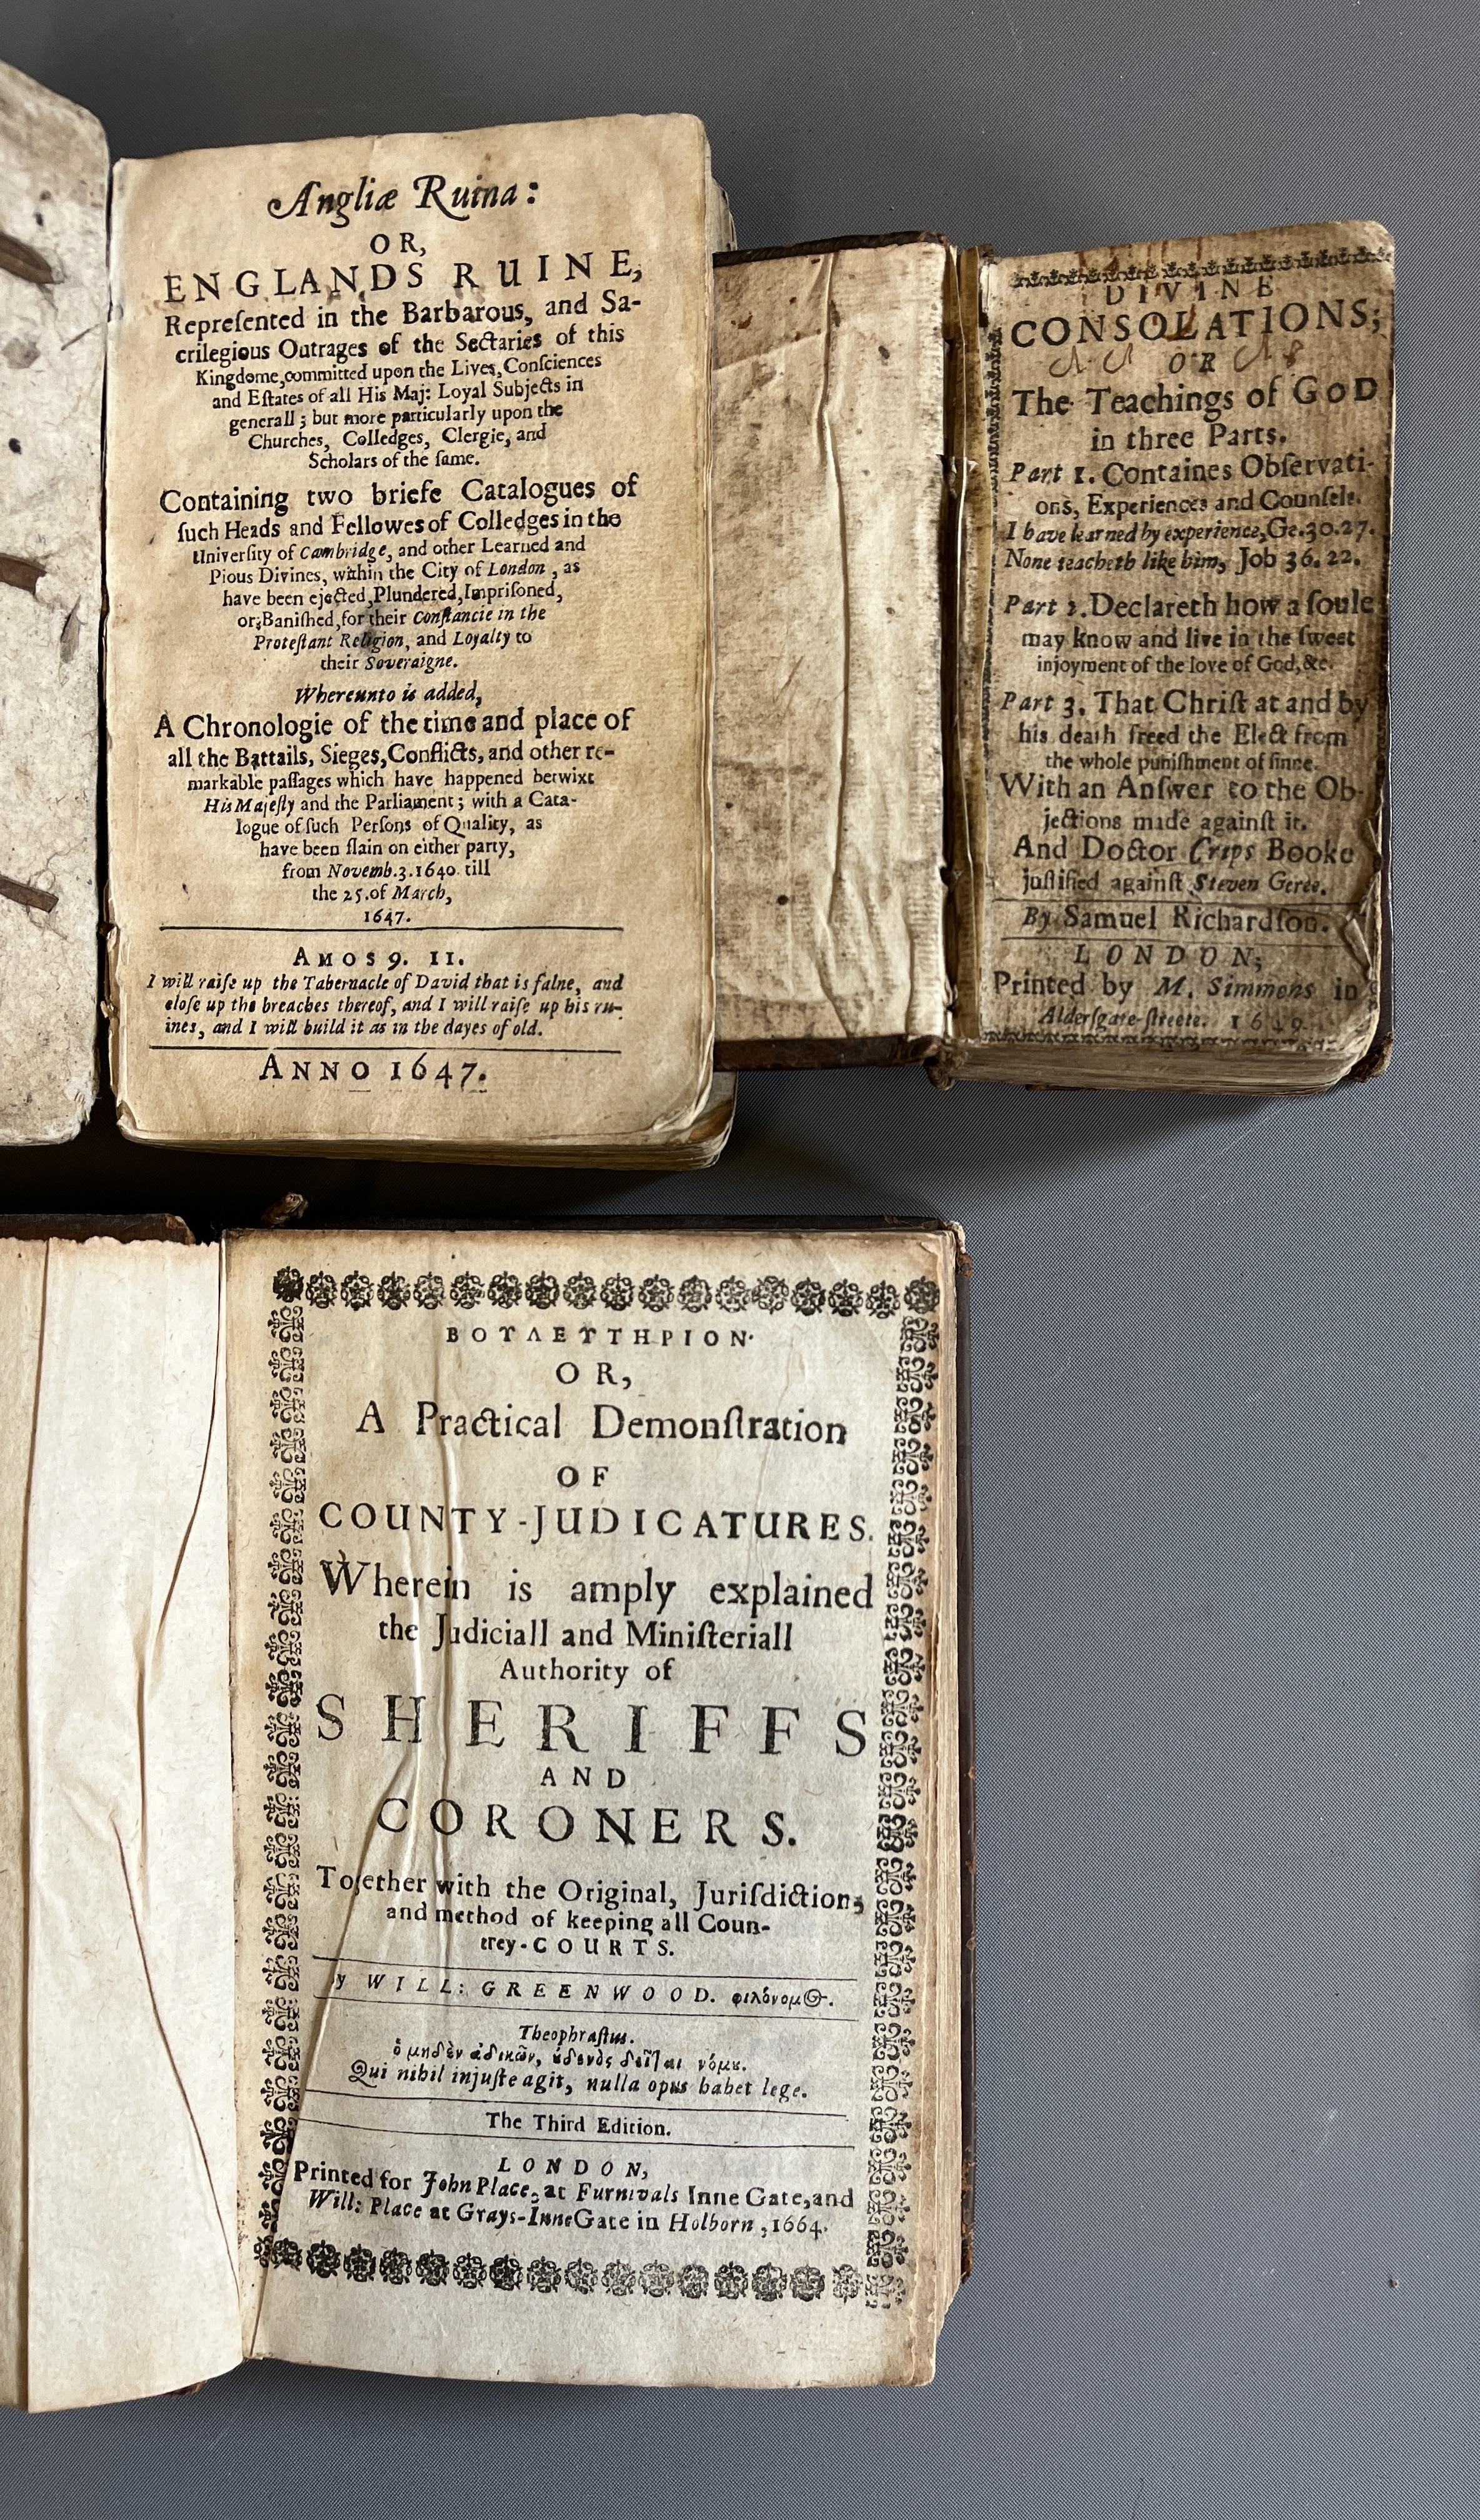 Angliæ Ruina:
OR,
ENGLANDS RUINE,
Repreſented in the Barbarous, and Sa-
crilegious Outrages of the Sectaries of this
Kingdome, committed upon the Lives, Conſciences
and Eſtates of all His Maj: Loyal Subjects in
generall; but more particularly upon the
Churches, Colledges, Clergie, and
Scholars of the ſame.
Containing two briefe Catalogues of
ſuch Heads and Fellowes of Colledges in the
Univerſity of Cambridge, and other Learned and
Pious Divines, within the City of London, as
have been ejected, Plundered, Impriſoned,
or Baniſhed, for their Conſtancie in the
Proteſtant Religion, and Loyalty to
their Soveraigne.
Whereunto is added,
A Chronologie of the time and place of
all the Battails, Sieges, Conflicts, and other re-
markable paſſages which have happened betwixt
His Majeſty and the Parliament; with a Cata-
logue of ſuch Perſons of Quality, as
have been ſlain on either party,
from Novemb. 3. 1640. till
the 25. of March,
1647.
AMOS 9. 11.
I will raiſe up the Tabernacle of David that is falne, and
cloſe up the breaches thereof, and I will raiſe up his ru-
ines, and I will build it as in the dayes of old.
ANNO 1647.
DIVINE
CONSOLATIONS;
OR
The Teachings of GOD
in three Parts.
Part 1. Containes Obſervati-
ons, Experiences and Counſels.
I have learned by experience, Ge. 30. 27.
None teacheth like him, Job 36. 22.
Part 2. Declareth how a ſoule
may know and live in the ſweet
injoyment of the love of God, &c.
Part 3. That Chriſt at and by
his death freed the Elect from
the whole puniſhment of ſinne.
With an Anſwer to the Ob-
jections made againſt it.
And Doctor Criſps Booke
juſtified againſt Steven Geree.
By Samuel Richardſon.
LONDON,
Printed by M. Simmons in
Alderſgate-ſtreete. 1649.
ΒΟΥΛΕΥΤΗΡΙΟΝ·
OR,
A Practical Demonſtration
OF
COUNTY-JUDICATURES.
Wherein is amply explained
the Judiciall and Miniſteriall
Authority of
SHERIFFS
AND
CORONERS.
Together with the Original, Juriſdiction,
and method of keeping all Coun-
trey-COURTS.
y WILL: GREENWOOD. φιλόνομΘ.
Theophraſtus.
ὁ μηδὲν ἀδικῶν, ὐδενὸς δεῖται νόμȣ.
Qui nihil injuſte agit, nulla opus habet lege.
The Third Edition.
LONDON,
Printed for John Place, at Furnivals Inne Gate, and
Will: Place at Grays-Inne Gate in Holborn, 1664.